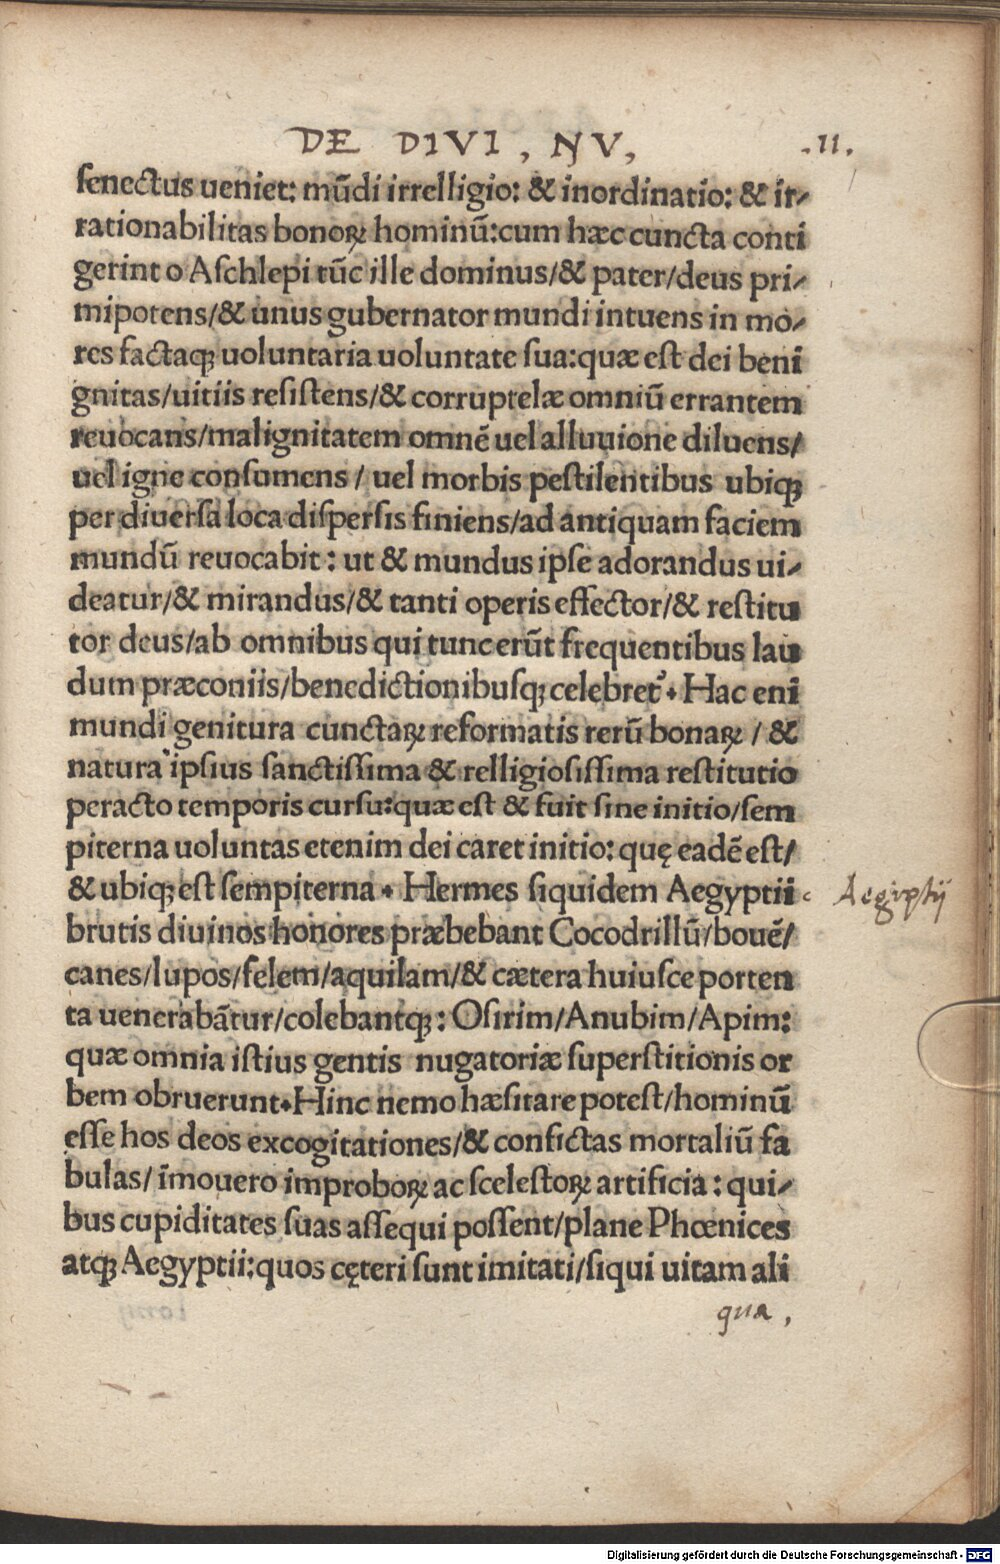 DE DIVI, NV,
.11.
senectus ueniet: mũdi irrelligio: & inordinatio: & ir⸗
rationabilitas bonoꝝ hominũ: cum hæc cuncta conti
gerint o Aschlepi tũc ille dominus/& pater/deus pri⸗
mipotens/& unus gubernator mundi intuens in mo⸗
res factaqꝫ uoluntaria uoluntate sua: quæ est dei beni
gnitas/uitiis resistens/& corruptelæ omniũ errantem
reuocans/malignitatem omnẽ uel alluuione diluens/
uel igne consumens / uel morbis pestilentibus ubiqꝫ
per diuersa loca dispersis finiens/ad antiquam faciem
mundũ reuocabit: ut & mundus ipse adorandus ui⸗
deatur/& mirandus/& tanti operis effector/& restitu
tor deus/ab omnibus qui tunc erũt frequentibus lau
dum præconiis/benedictionibusqꝫ celebret᷑. Hac eni
mundi genitura cunctaꝝ reformatis rerũ bonaꝝ / &
natura ipsius sanctissima & relligiosissima restitutio
peracto temporis cursu: quæ est & fuit sine initio/sem
piterna uoluntas etenim dei caret initio: quę eadẽ est/
& ubiqꝫ est sempiterna. Hermes siquidem Aegyptii
Aegiptij
brutis diuinos honores præbebant Cocodrillũ/bouẽ/
canes/lupos/felem/aquilam/& cætera huiusce porten
ta uenerabãtur/colebantqꝫ: Osirim/Anubim/Apim:
quæ omnia istius gentis nugatoriæ superstitionis or
bem obruerunt. Hinc nemo hæsitare potest/hominũ
esse hos deos excogitationes/& confictas mortaliũ fa
bulas/ĩmouero improboꝝ ac scelestoꝝ artificia: qui⸗
bus cupiditates suas assequi possent/plane Phœnices
atqꝫ Aegyptii: quos cęteri sunt imitati/siqui uitam ali
qua,
Digitalisierung gefördert durch die Deutsche Forschungsgemeinschaft - DFG